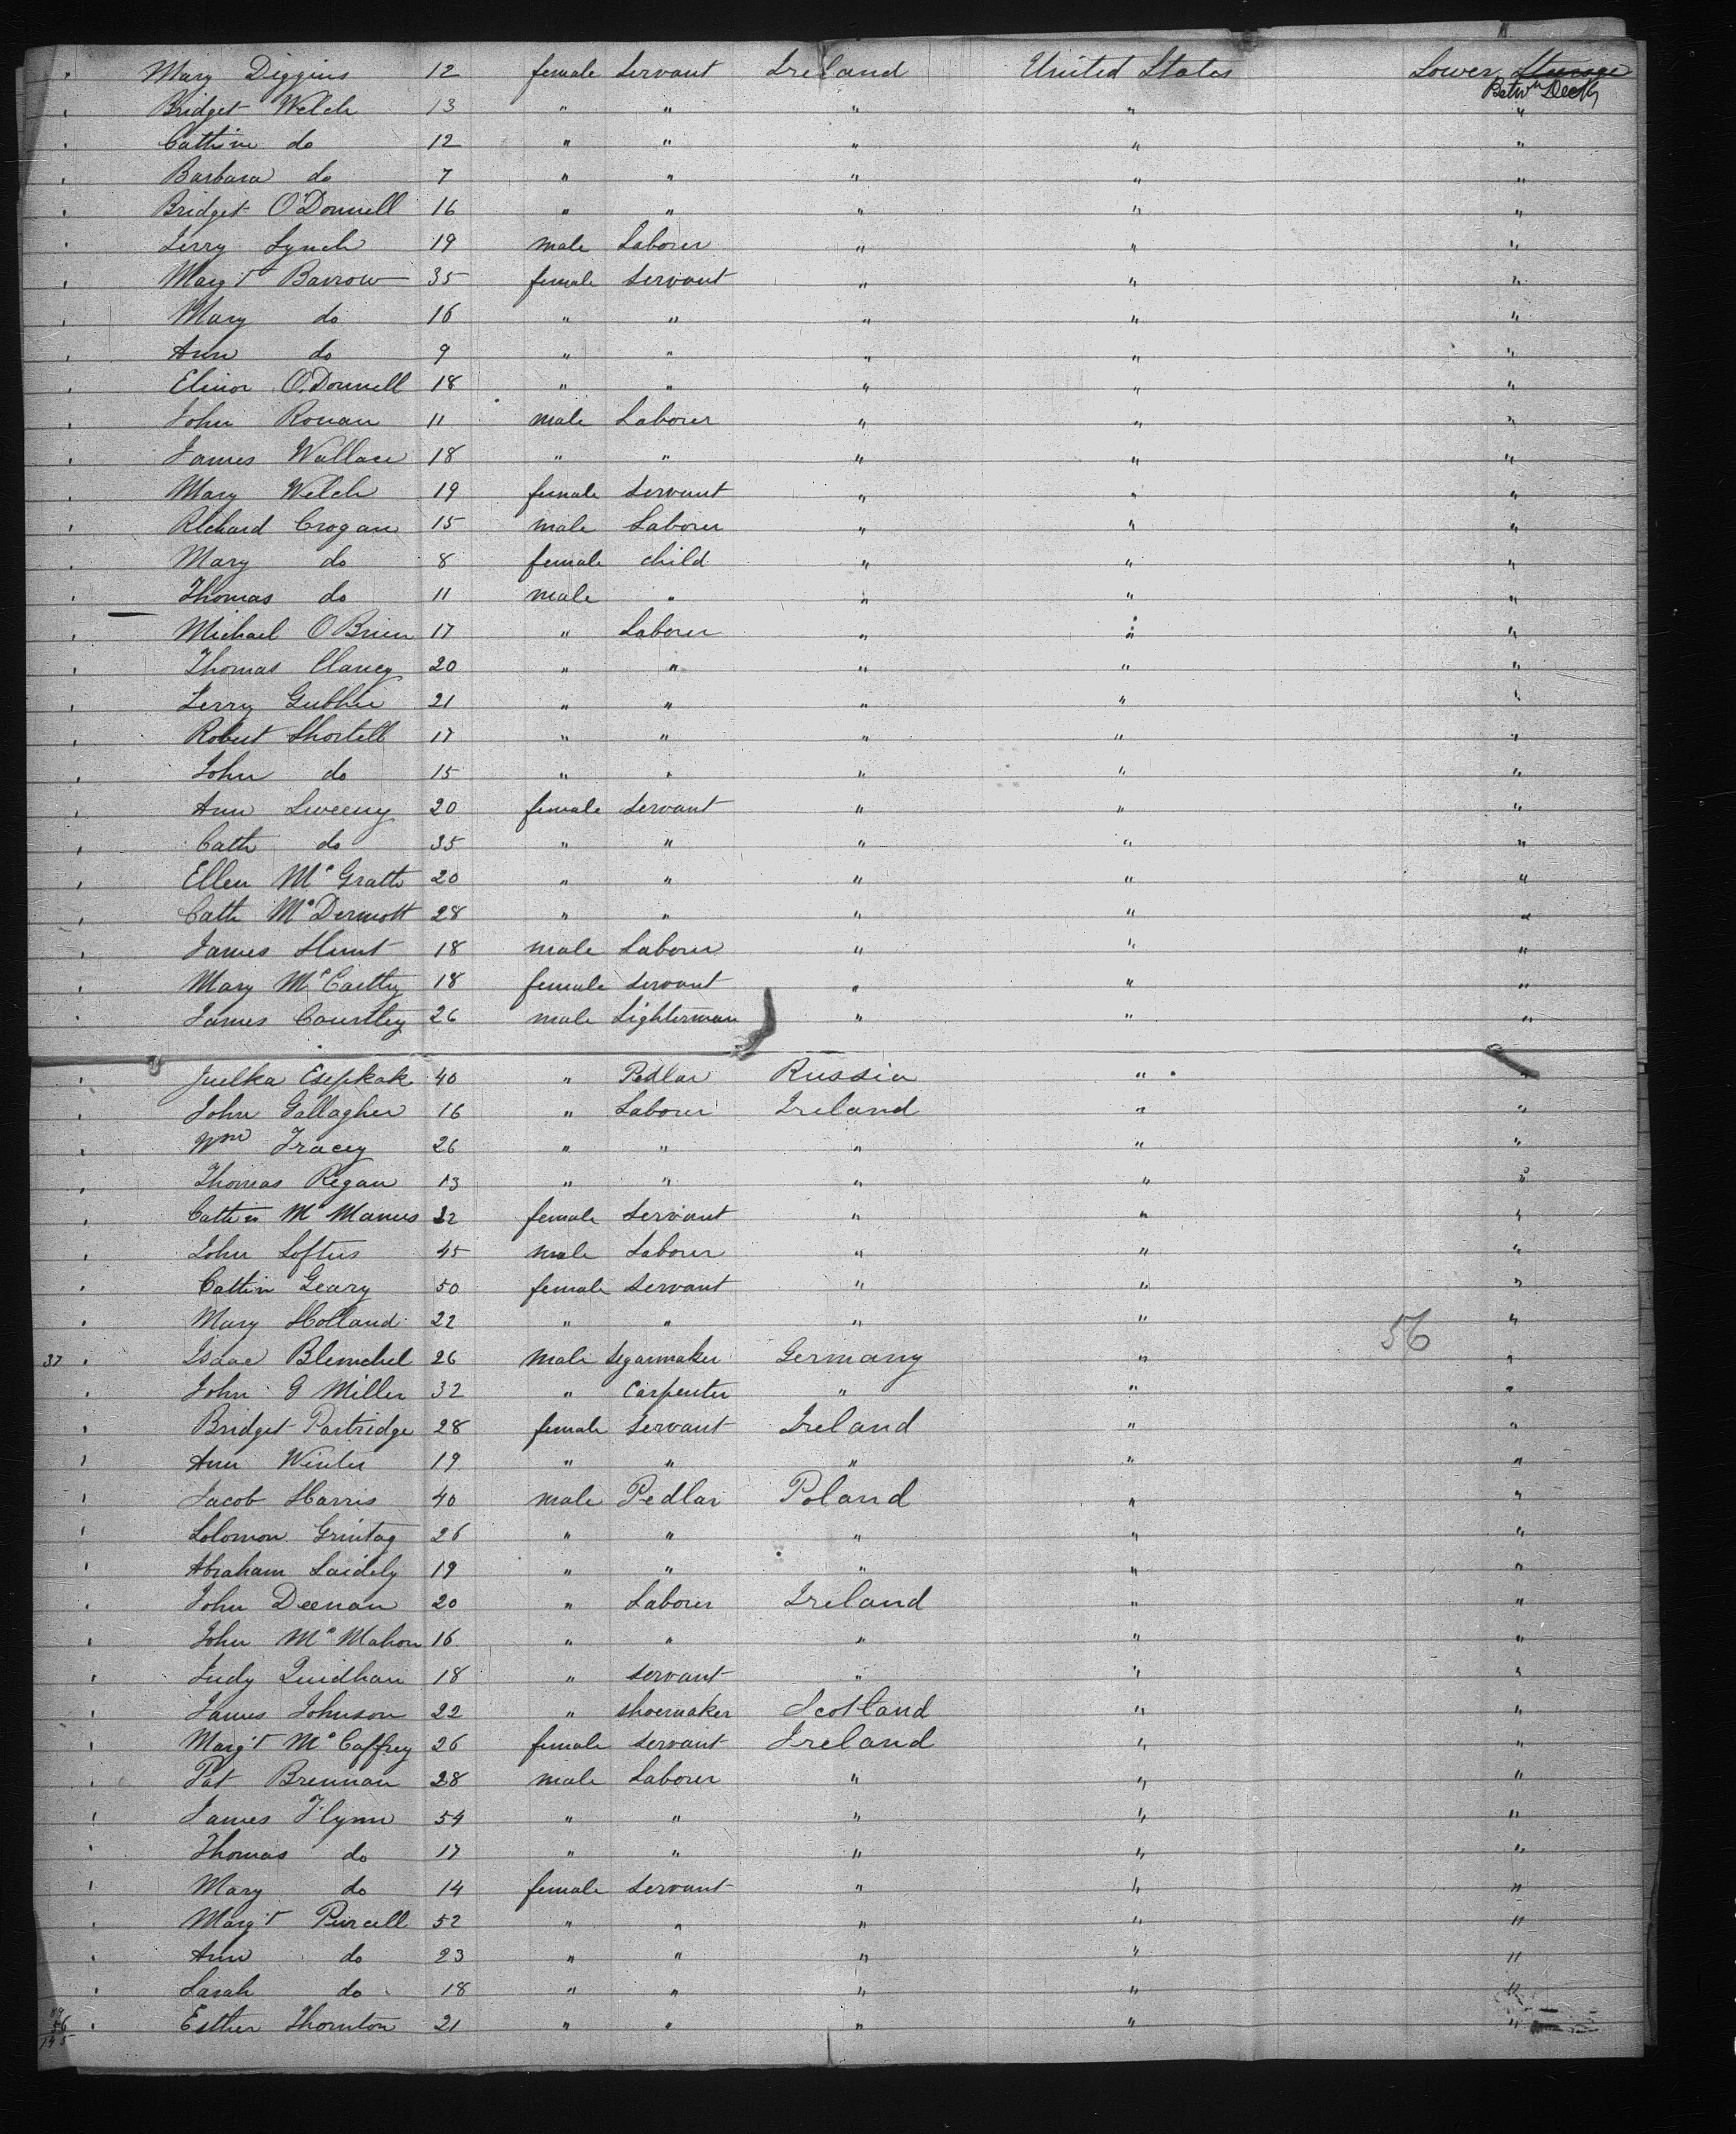 Mary Diggins 12 female Servant Ireland United States Lower Steerage
Betwn Deck
Bridget Welch 13 " " " " "
Cathine do 12 " " " " "
Barbara do 7 " " " " "
Bridget O'Donnell 16 " " " " "
Jerry Lynch 19 male Laborer " " "
Margt Barrow 35 female Servant " " "
Mary do 16 " " " " "
Ann do 9 " " " " "
Elinor O.Donnell 18 " " " " "
John Ronan 11 male Laborer " " "
James Wallace 18 " " " " "
Mary Welch 19 female Servant " " "
Richard Crogan 15 male Laborer " " "
Mary do 8 female child " " "
Thomas do 11 male " " " "
Michael O Brien 17 " Laborer " " "
Thomas Clancy 20 " " " " "
Jerry 21 " " " " "
Robert Shortell 17 " " " " "
John do 15 " " " " "
Ann Sweeny 20 female Servant " " "
Cath do 35 " " " " "
Ellen Mc Grath 20 " " " " "
Cath McDermott 28 " " " " "
James Hunt 18 male Laborer " " "
Mary McCarthy 18 female Servant " " "
James Courtley 26 male Lighterman " " "
Juelka Esepkak 40 " Pedlar Russia " "
John Gallagher 16 " Laborer Ireland " "
Wm Tracey 26 " " " " "
Thomas Regan 13 " " " " "
Cathin Mc Manus 32 female Servant " " "
John Loftus 45 male Laborer " " "
Cathin Geary 50 female Servant " " "
Mary Holland 22 " " " " "
56
37 Isaac Blemchel 26 male Segarmaker Germany " "
John G Miller 32 " Carpenter " " "
Bridget Partridge 28 female Servant Ireland " "
Ann Winter 19 " " " " "
Jacob Harris 40 male Pedlar Poland " "
Solomon Grintag 26 " " " " "
Abraham Laidely 19 " " " " "
John Deenan 20 " Laborer Ireland " "
John Mc Mahon 16 " " " " "
Judy Quidhan 18 " Servant " " "
James Johnson 22 " Shoemaker Scotland " "
Margt Mc Caffrey 26 female Servant Ireland " "
Pat Brennan 28 male Laborer " " "
James Flynn 54 " " " " "
Thomas do 17 " " " " "
Mary do 14 female Servant " " "
Margt Purcell 52 " " " " "
Ann do 23 " " " " "
Sarah do 18 " " " " "
Esther Thornton 21 " " " " "
56
145